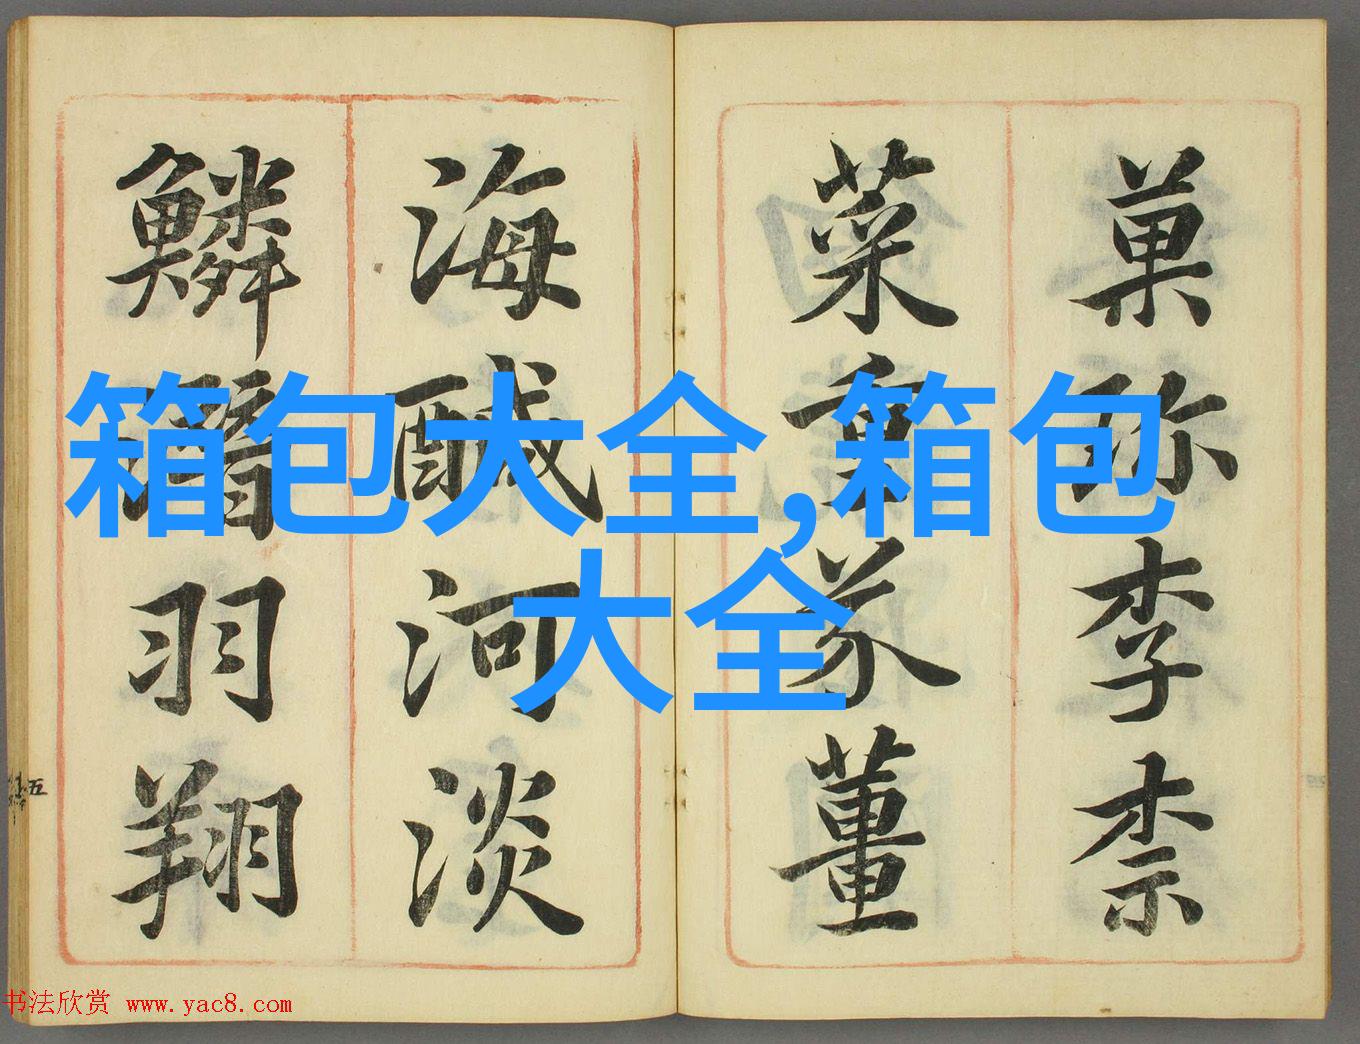 菓珎李柰
菜重芥薑
海醎河淡
鱗潛羽翔
五
箱包大全,箱包
大全
书法欣赏 www.yac8.com